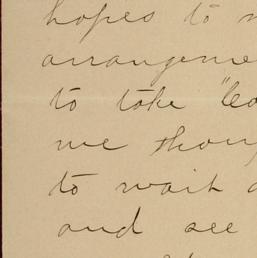 hopes to
arrangeme
to take "
we thou
to wait
and see